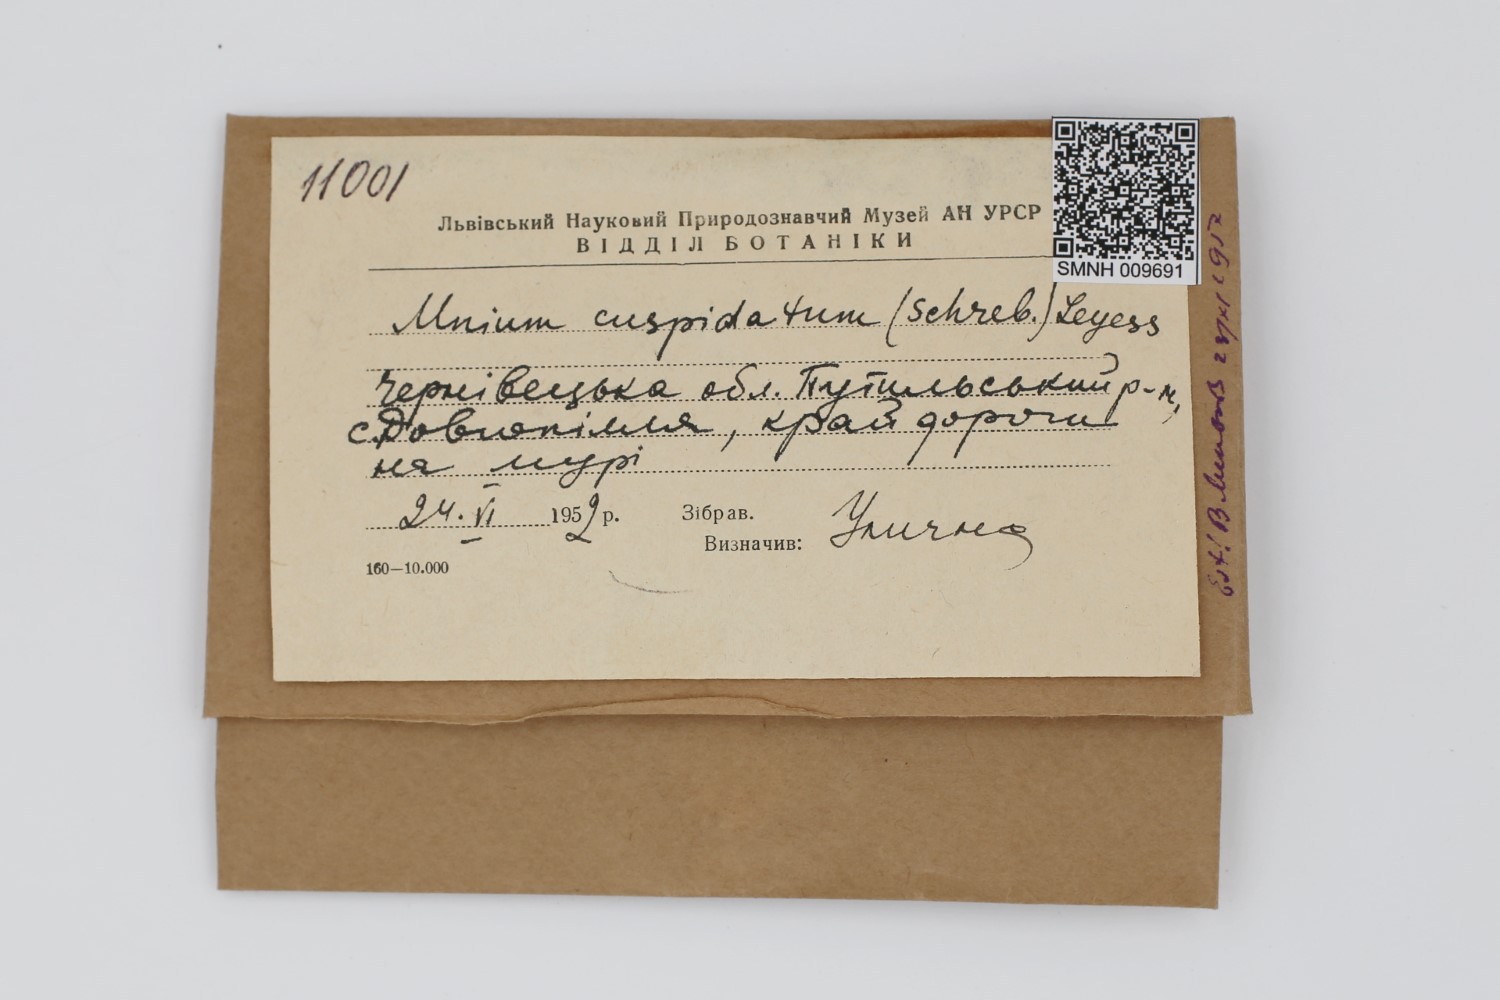 11001
Львівський Науковий Природознавчий Музей АН УРСР
ВІДДІЛ БОТАНІКИ
SMNH 009691
Mnium cuspidatum (Schreb.) Leyess
Чернівецька обл. Путильський р-н,
с. Довгопілля, край дороги
на мурі
24. VI 1952 р. Зібрав.
Визначив: Улична
160—10.000
Est!